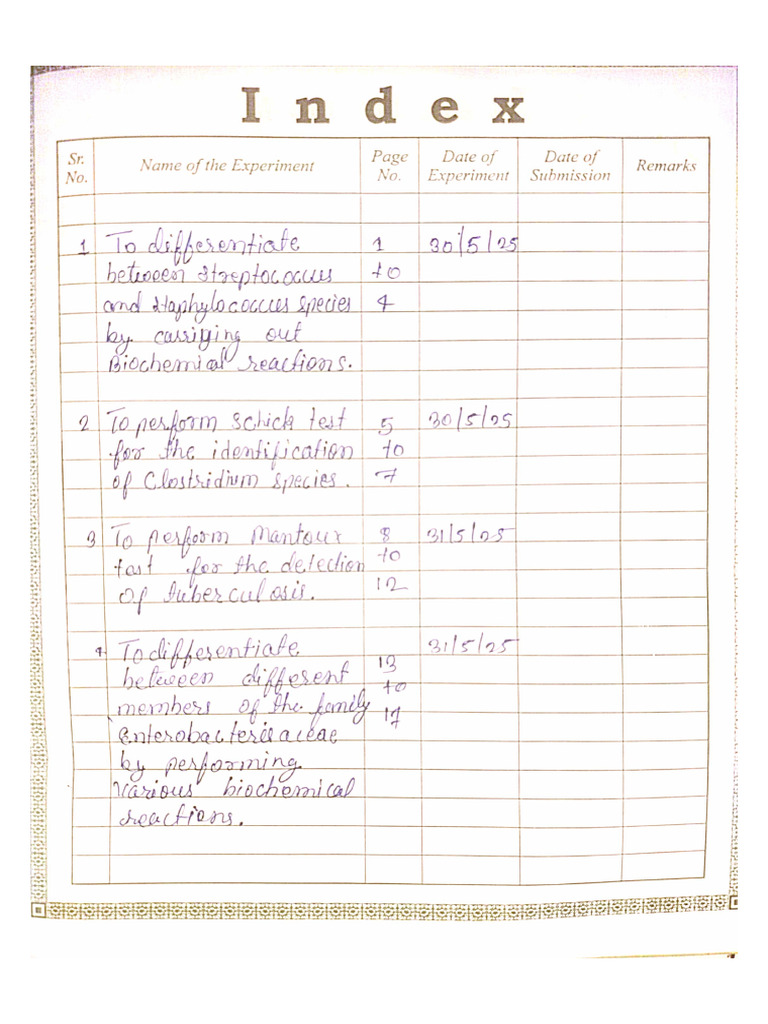 Index
Sr. No. Name of the Experiment Page No. Date of Experiment Date of Submission Remarks
1 To differentiate 1 30/5/25
between Streptococcus to
and Staphylococcus species 4
by carrying out
Biochemical reactions.
2 To perform Schick test 5 30/5/25
for the identification to
of Clostridium species. 7
3 To perform Mantoux 8 31/5/25
test for the detection to
of tuberculosis. 12
4. To differentiate 31/5/25
between different 13
members of the family to
Enterobacterieaceae 17
by performing
various biochemical
reactions.